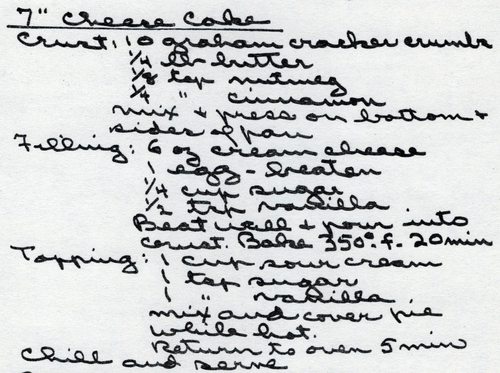 7" Cheese Cake
Crust: 10 graham cracker crumbs
1/4 lb butter
1/8 tsp nutmeg
1/4 " cinnamon
mix + press on bottom +
sides of pan
Filling: 6 oz cream cheese
1 egg - beaten
1/4 cup sugar
1/2 tsp vanilla
Beat well + pour into
crust. Bake 350°.f. 20 min
Topping: 1 cup sour cream
1 tsp sugar
1 " vanilla
mix and cover pie
while hot.
Return to oven 5 min
Chill and serve